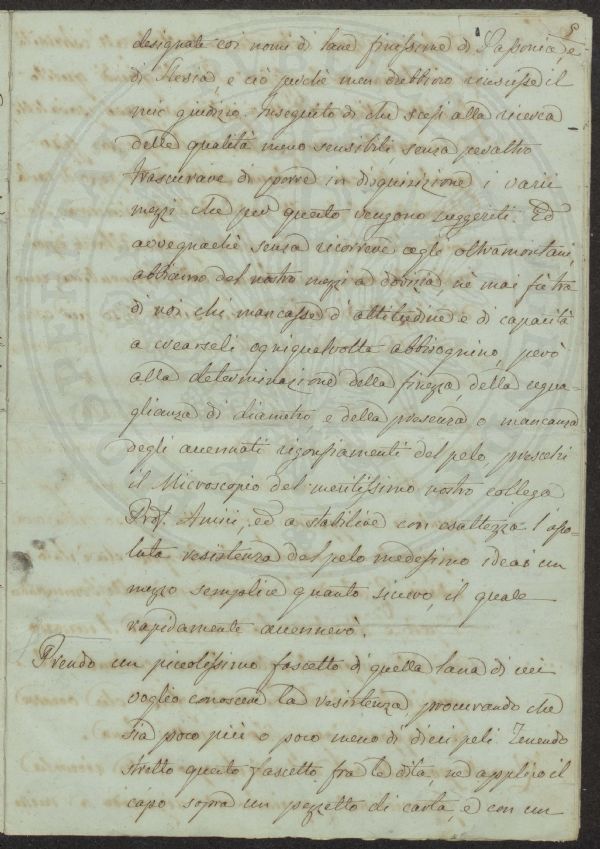 designate coi nomi di lane finissime di Sassonia, e
di Slesia, e ciò perchè men dubbioso riuscisse il
mio giudizio. Inseguito di che scesi alla ricerca
delle qualità meno sensibili, senza peraltro
trascurare di porre in disquisizione i varii
mezzi che per questo vengono suggeriti. Ed
avvegnachè senza ricorrere agli oltramontani
abbiamo del nostro mezzi a dovizia, nè mai fia tra
di noi chi mancasse d'attitudine e di capacità
a crearseli ogniqualvolta abbisognino, però
alla determinazione della finezza, della egua-
glianza di diametro e della presenza o mancanza
degli accennati rigonfiamenti del pelo, prescelsi
il Microscopio del meritissimo nostro collega
Prof. Amici, ed a stabilire con esattezza l'asso-
luta resistenza del pelo medesimo ideai un
mezzo semplice quanto sicuro, il quale
rapidamente accennerò.
Prendo un piccolissimo fascetto di quella lana di cui
voglio conoscere la resistenza procurando che
sia poco più o poco meno di dieci peli. Tenendo
stretto questo fascetto fra le dita, ne applico il
capo sopra un pezzetto di carta, e con un